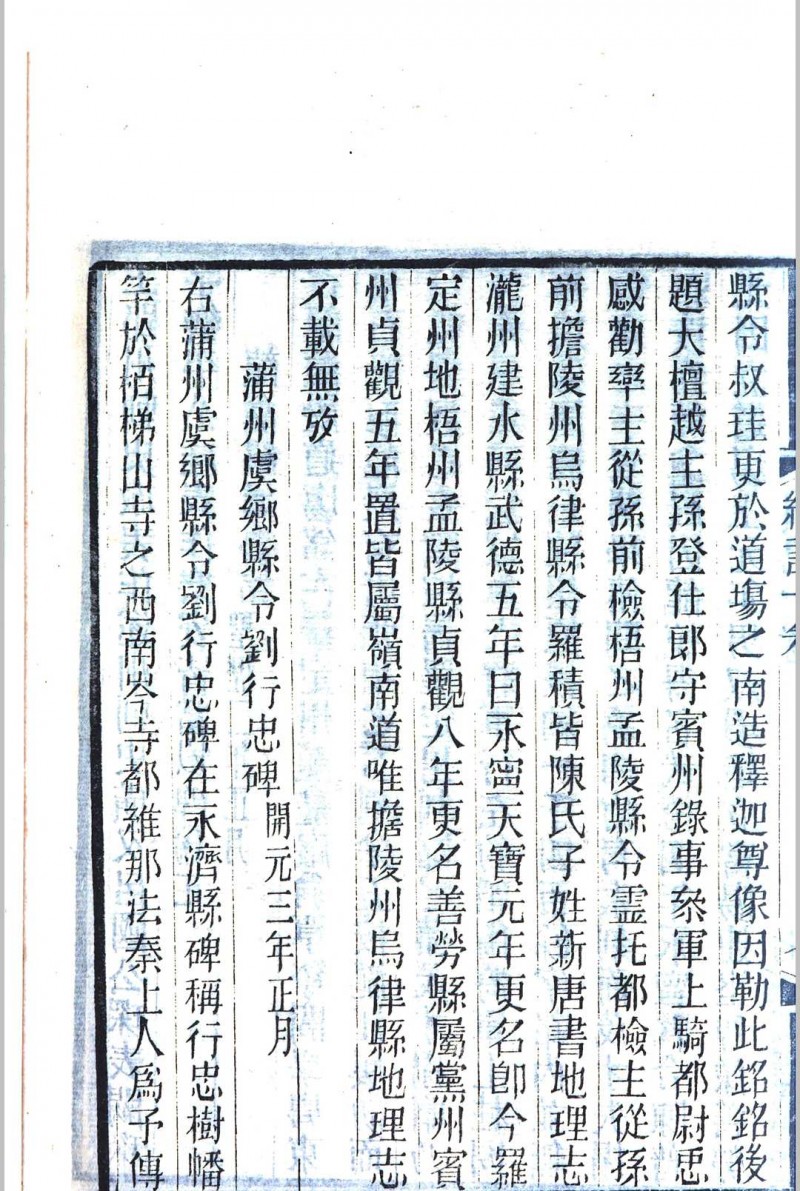 縣令叔珪更於道場之南造釋迦尊像因勒此銘銘後
題大檀越主孫登仕郎守賓州錄事叅軍上騎都尉思
感勸率主從孫前檢梧州孟陵縣令靈托都檢主從孫
前擔陵州烏律縣令羅積皆陳氏子姓新唐書地理志
瀧州建水縣武德五年曰永寧天寶元年更名卽今羅
定州地梧州孟陵縣貞觀八年更名善勞縣屬黨州賓
州貞觀五年置皆屬嶺南道唯擔陵州烏律縣地理志
不載無攷
蒲州虞鄉縣令劉行忠碑 開元三年正月
右蒲州虞鄉縣令劉行忠碑在永濟縣碑稱行忠樹幡
竿於栢梯山寺之西南岑寺都維那法秦上人爲予傳